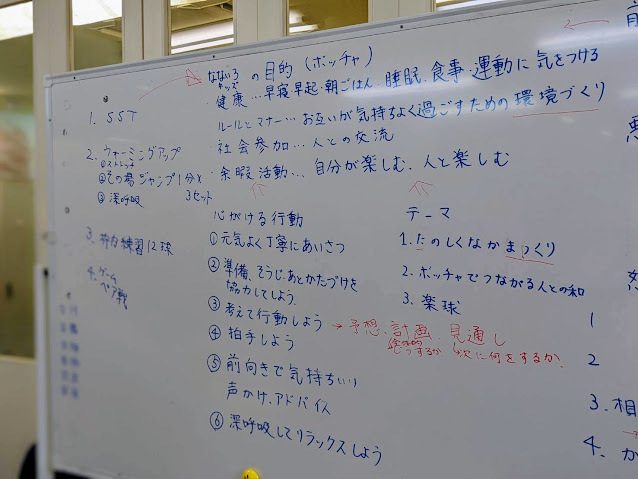 なないろ
キッズ
の目的(ボッチャ)
・健康…早寝早起・朝ごはん、睡眠、食事・運動に気をつける
ルールとマナー…お互いが気持ちよく過ごすための環境づくり
社会参加…人との交流
・余暇活動…自分が楽しむ、人と楽しむ
1. SST
2. ウォーミングアップ
①ストレッチ
②その場ジャンプ1分×
3セット
③深呼吸
3. 枠内練習12球
4. ゲーム
ペア戦
心がける行動
①元気よく丁寧にあいさつ
②準備、そうじ、あとかたづけを
協力してしよう。
③考えて行動しよう
→予想、計画、見通し
次に何をするか。
④拍手しよう
⑤前向きで気持ちいい
声かけ、アドバイス
⑥深呼吸してリラックスしよう
テーマ
1. たのしくなかまづくり
2. ボッチャでつながる人との和
3. 楽球
1
2
3. 相
4. か